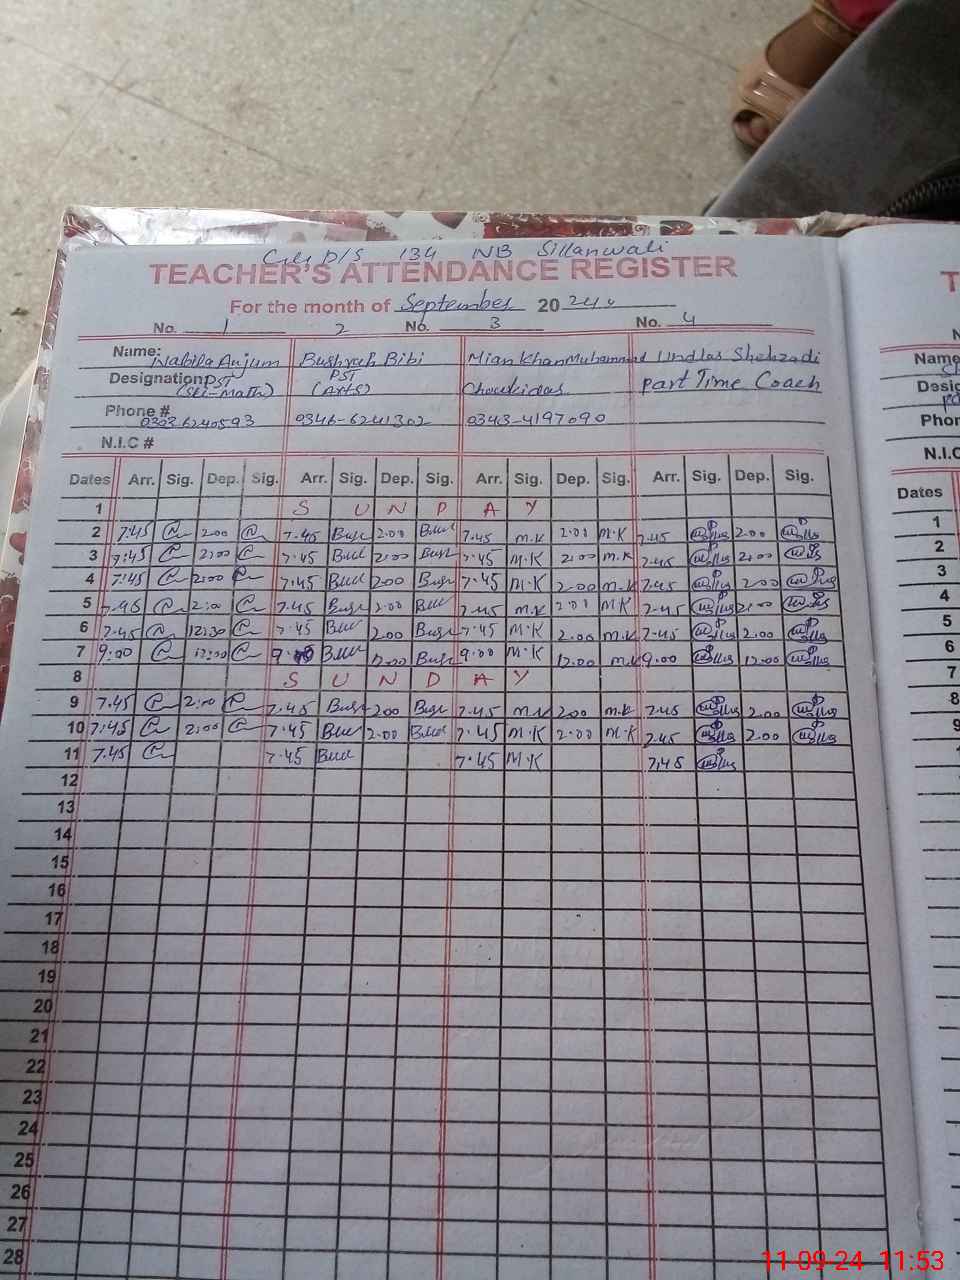 P/S 134 NB Sillanwali
TEACHER'S ATTENDANCE REGISTER
For the month of September 2024
No. 1 2 No. 3 No. 4
Name: Nabila Anjum Bushrah Bibi Mian Khan Muhammad Undlas Shehzadi
Designation: PST (Sci-Math) PST (Arts) Choukidar Part Time Coach
Phone # 0303 6240593 0346-6241302 0343-4197090
N.I.C #
Dates Arr. Sig. Dep. Sig. Arr. Sig. Dep. Sig. Arr. Sig. Dep. Sig. Arr. Sig. Dep. Sig.
1 S U N D A Y
2 7.45 200 7.45 2.00 7.45 M.K 2.00 M.K 7.45 2.00
3 7:45 2:00 7.45 2:00 7.45 M.K 2:00 M.K 7.45 2:00
4 7:45 2:00 7.45 200 7.45 M.K 2.00 M.K 7.45 200
5 7.45 2:00 7.45 2.00 7.45 M.K 2.00 M.K 7.45 2:00
6 7.45 12:30 7.45 200 7.45 M.K 2.00 M.K 7.45 2.00
7 9:00 12:00 12.00 9.00 M.K 12.00 M.K 9.00 12.00
8 S U N D A Y
9 7.45 2:00 7.45 200 7.45 M.K 200 M.K 7.45 2.00
10 7.45 2:00 7.45 2.00 7.45 M.K 2.00 M.K 7.45 2.00
11 7.45 7.45 7.45 M.K 7.45
12
13
14
15
16
17
18
19
20
21
22
23
24
25
26
27
28
T
Name
Desig
Phon
N.I.C
Dates
1
2
3
4
5
6
7
8
9
11-09-24 11:53